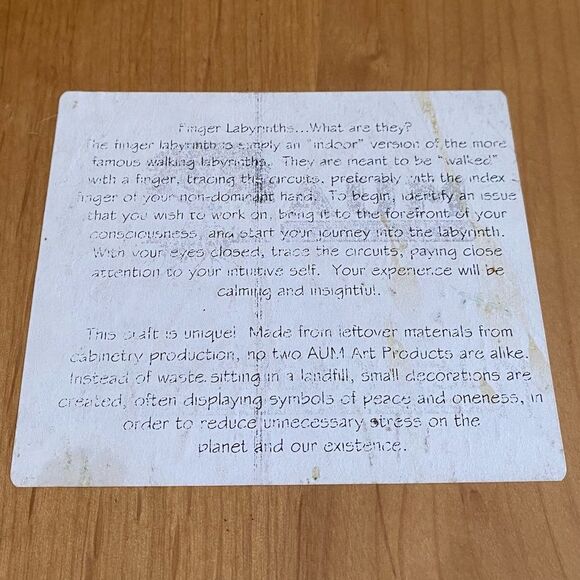 Finger Labyrinths...What are they?
The finger labyrinth is simply an "indoor" version of the more
famous walking labyrinths. They are meant to be "walked"
with a finger, tracing the circuits, preferably with the index
finger of your non-dominant hand. To begin, identify an issue
that you wish to work on, bring it to the forefront of your
consciousness, and start your journey into the labyrinth.
With your eyes closed, trace the circuits, paying close
attention to your intuitive self. Your experience will be
calming and insightful.
This craft is unique! Made from leftover materials from
cabinetry production, no two AUM Art Products are alike.
Instead of waste sitting in a landfill, small decorations are
created, often displaying symbols of peace and oneness, in
order to reduce unnecessary stress on the
planet and our existence.